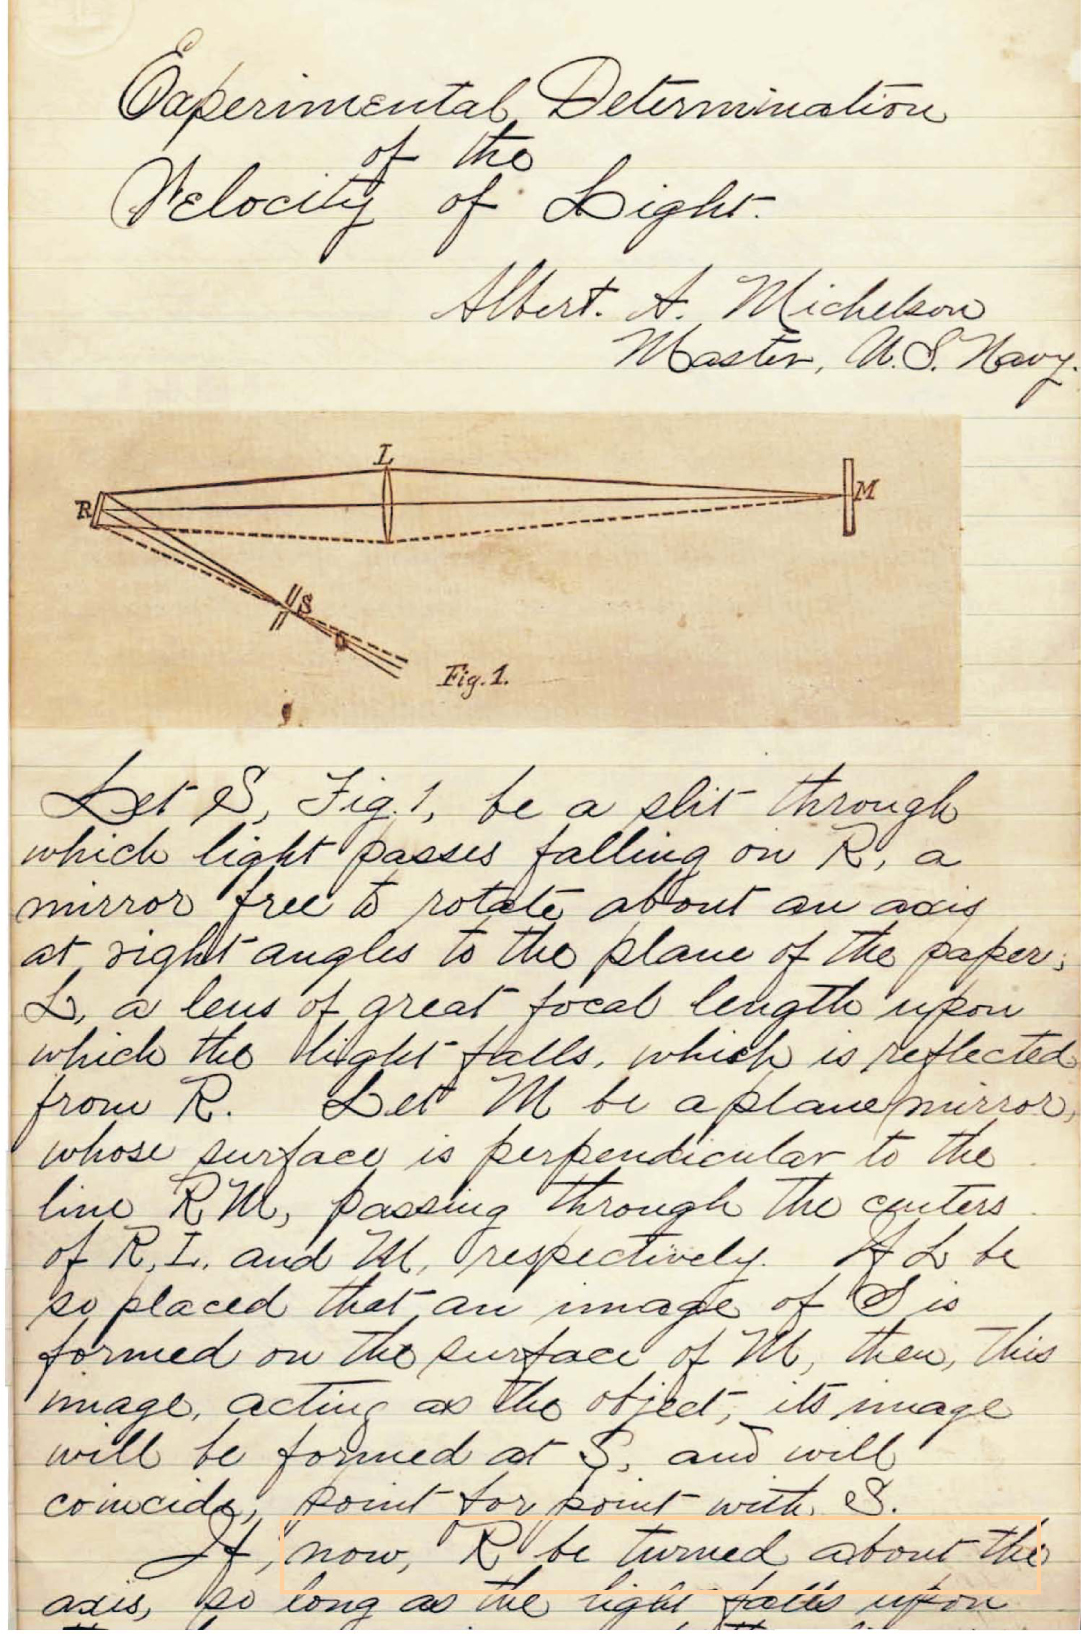 Experimental Determination
of the
Velocity of Light.
Albert. A. Michelson
Master, U.S. Navy.
L
R
M
S
Fig. 1.
Let S, Fig. 1, be a slit through
which light passes falling on R, a
mirror free to rotate about an axis
at right angles to the plane of the paper;
L, a lens of great focal length upon
which the light falls, which is reflected
from R. Let M be a plane mirror,
whose surface is perpendicular to the
line RM, passing through the centers
of R, L, and M, respectively. If L be
so placed that an image of S is
formed on the surface of M, then, this
image, acting as the object, its image
will be formed at S, and will
coincide, point for point with S.
If, now, R be turned about the
axis, so long as the light falls upon